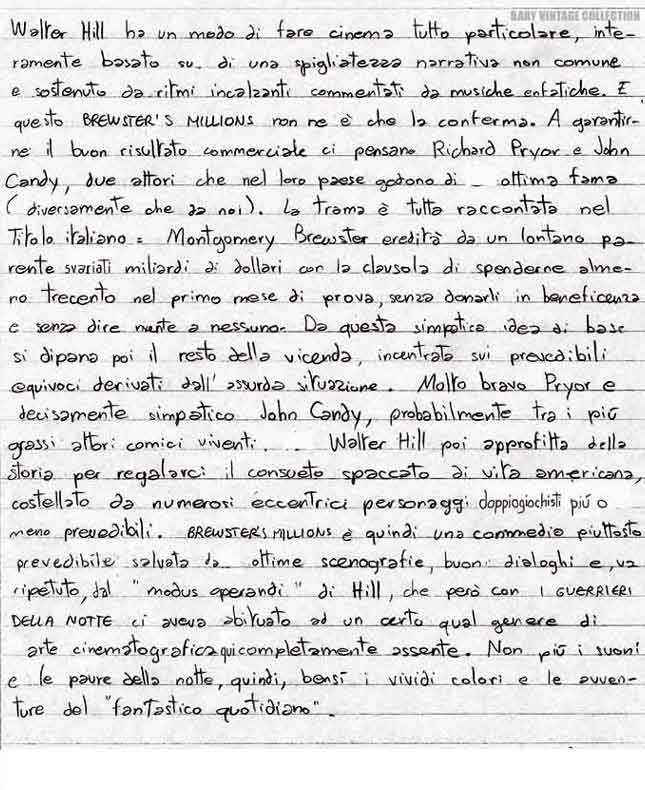 GARY VINTAGE COLLECTION
Walter Hill ha un modo di fare cinema tutto particolare, inte-
ramente basato su di una spigliatezza narrativa non comune
e sostenuto da ritmi incalzanti commentati da musiche enfatiche. E
questo BREWSTER'S MILLIONS non ne è che la conferma. A garantir-
ne il buon risultato commerciale ci pensano Richard Pryor e John
Candy, due attori che nel loro paese godono di _ ottima fama
(diversamente che da noi). La trama è tutta raccontata nel
Titolo italiano = Montgomery Brewster eredita da un lontano pa-
rente svariati miliardi di dollari con la clausola di spenderne alme-
no trecento nel primo mese di prova, senza donarli in beneficenza
e senza dire niente a nessuno. Da questa simpatica idea di base
si dipana poi il resto della vicenda, incentrata sui prevedibili
equivoci derivati dall'assurda situazione. Molto bravo Pryor e
decisamente simpatico John Candy, probabilmente tra i più
grassi attori comici viventi. Walter Hill poi approfitta della
storia per regalarci il consueto spaccato di vita americana,
costellato da numerosi eccentrici personaggi doppiogiochisti più o
meno prevedibili. BREWSTER'S MILLIONS è quindi una commedia piuttosto
prevedibile salvata da ottime scenografie, buoni dialoghi e, va
ripetuto, dal "modus operandi" di Hill, che però con I GUERRIERI
DELLA NOTTE ci aveva abituato ad un certo qual genere di
arte cinematografica qui completamente assente. Non più i suoni
e le paure della notte, quindi, bensì i vividi colori e le avven-
ture del "fantastico quotidiano".